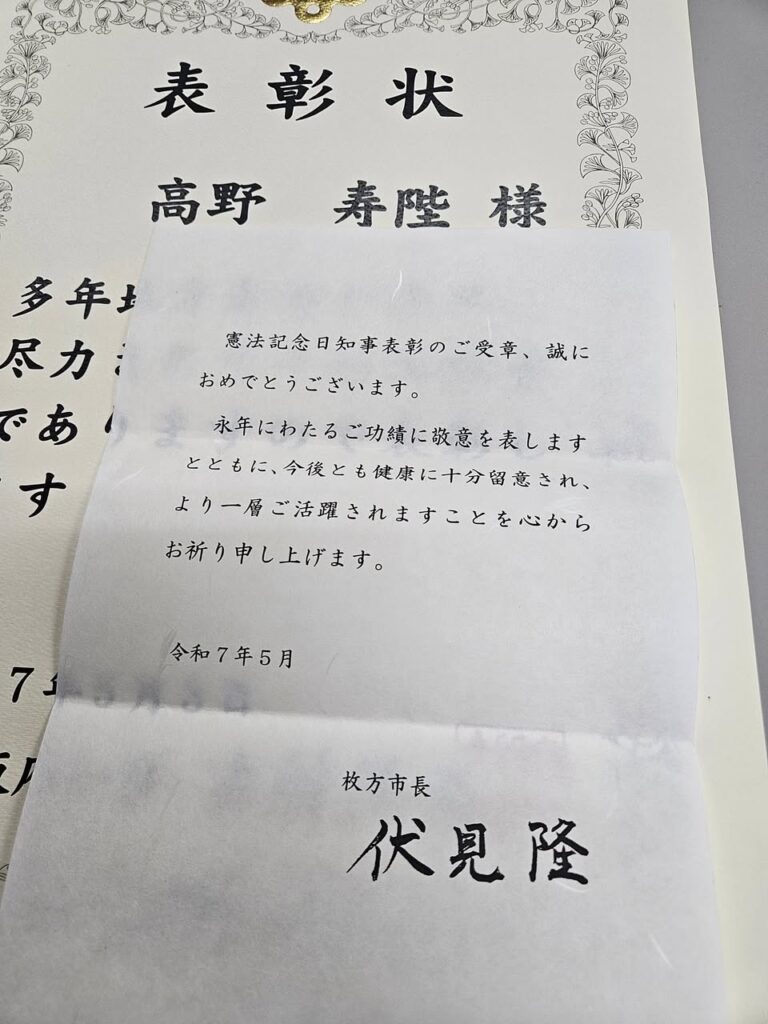 表彰状
高野 寿陛 様
多年
尽力
であり
す
７年
憲法記念日知事表彰のご受章、誠に
おめでとうございます。
永年にわたるご功績に敬意を表します
とともに、今後とも健康に十分留意され、
より一層ご活躍されますことを心から
お祈り申し上げます。
令和７年５月
枚方市長
伏見隆